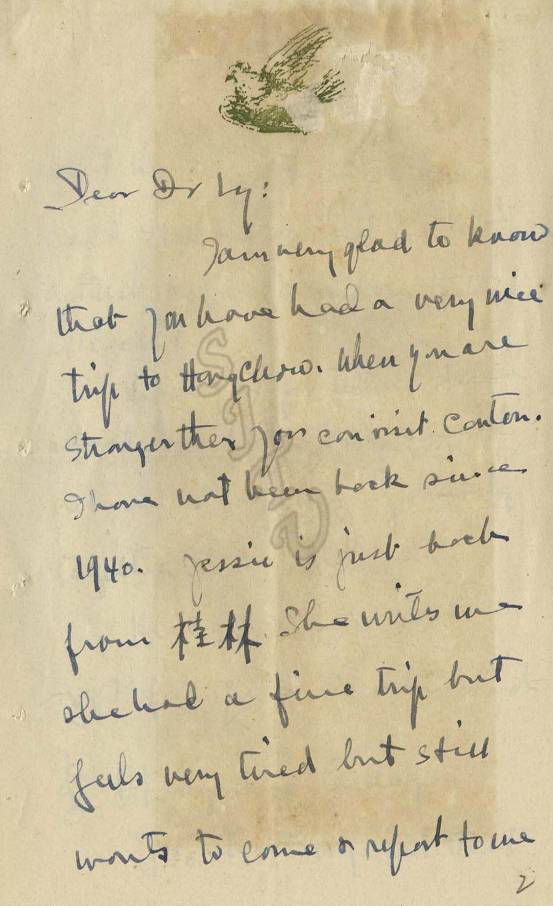 Dear Dr Ly:
I am very glad to know
that you have had a very nice
trip to HangChow. When you are
stronger then you can visit Canton.
I have not been back since
1940. Jessie is just back
from 桂林 She writes me
she had a fine trip but
feels very tired but still
wants to come & report to me
2